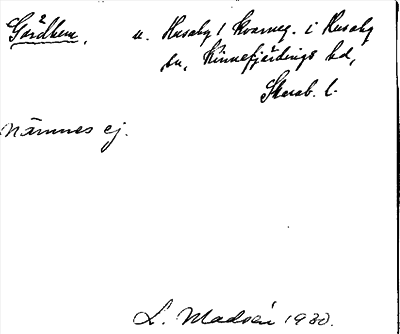 Gårdhem, u. Husaby 1 Kvarneg. i Husaby
sn, Kinnefjärdings hd,
Skarab. l.
Nämnes ej.
L. Madsén 1930.